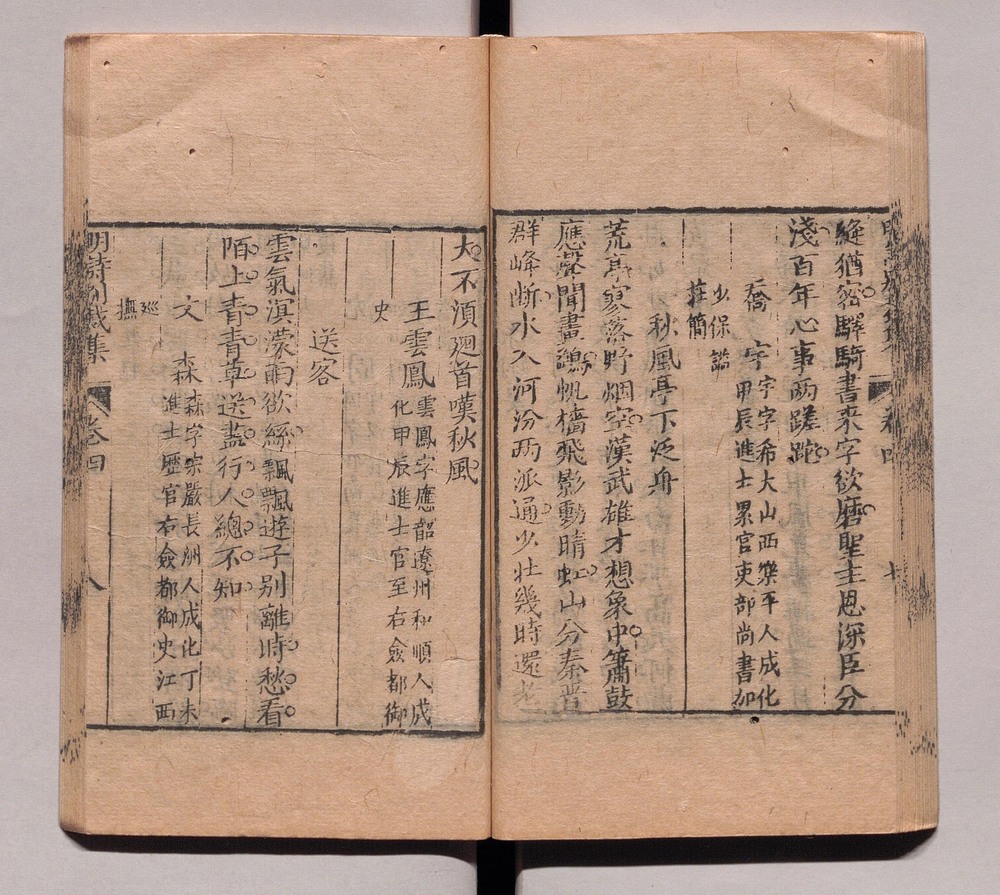 絕猶密驛騎書来字欲磨聖主恩深臣分
淺百年心事两蹉跎
喬宇
宇字希大山西樂平人成化
甲辰進士累官吏部尚書加
少保謚
莊簡
秋風亭下泛舟
荒亭寥落野烟空漢武雄才想象中簫鼓
應聲聞畫鷁帆檣飛影動晴虹山分秦晋
群峰断水入河汾两派通少壮幾時還老
大不湏廻首嘆秋風
王雲鳳
雲鳳字應韶遼州和順人成
化甲辰進士官至右僉都御
史
送客
雲氣溟濛雨欲絲飄飄遊子别離時愁看
陌上青青草送盡行人總不知
文森
森字宗嚴長洲人成化丁未
進士歴官右僉都御史江西
巡
撫
明詩别裁集
卷四
八
卷四
七